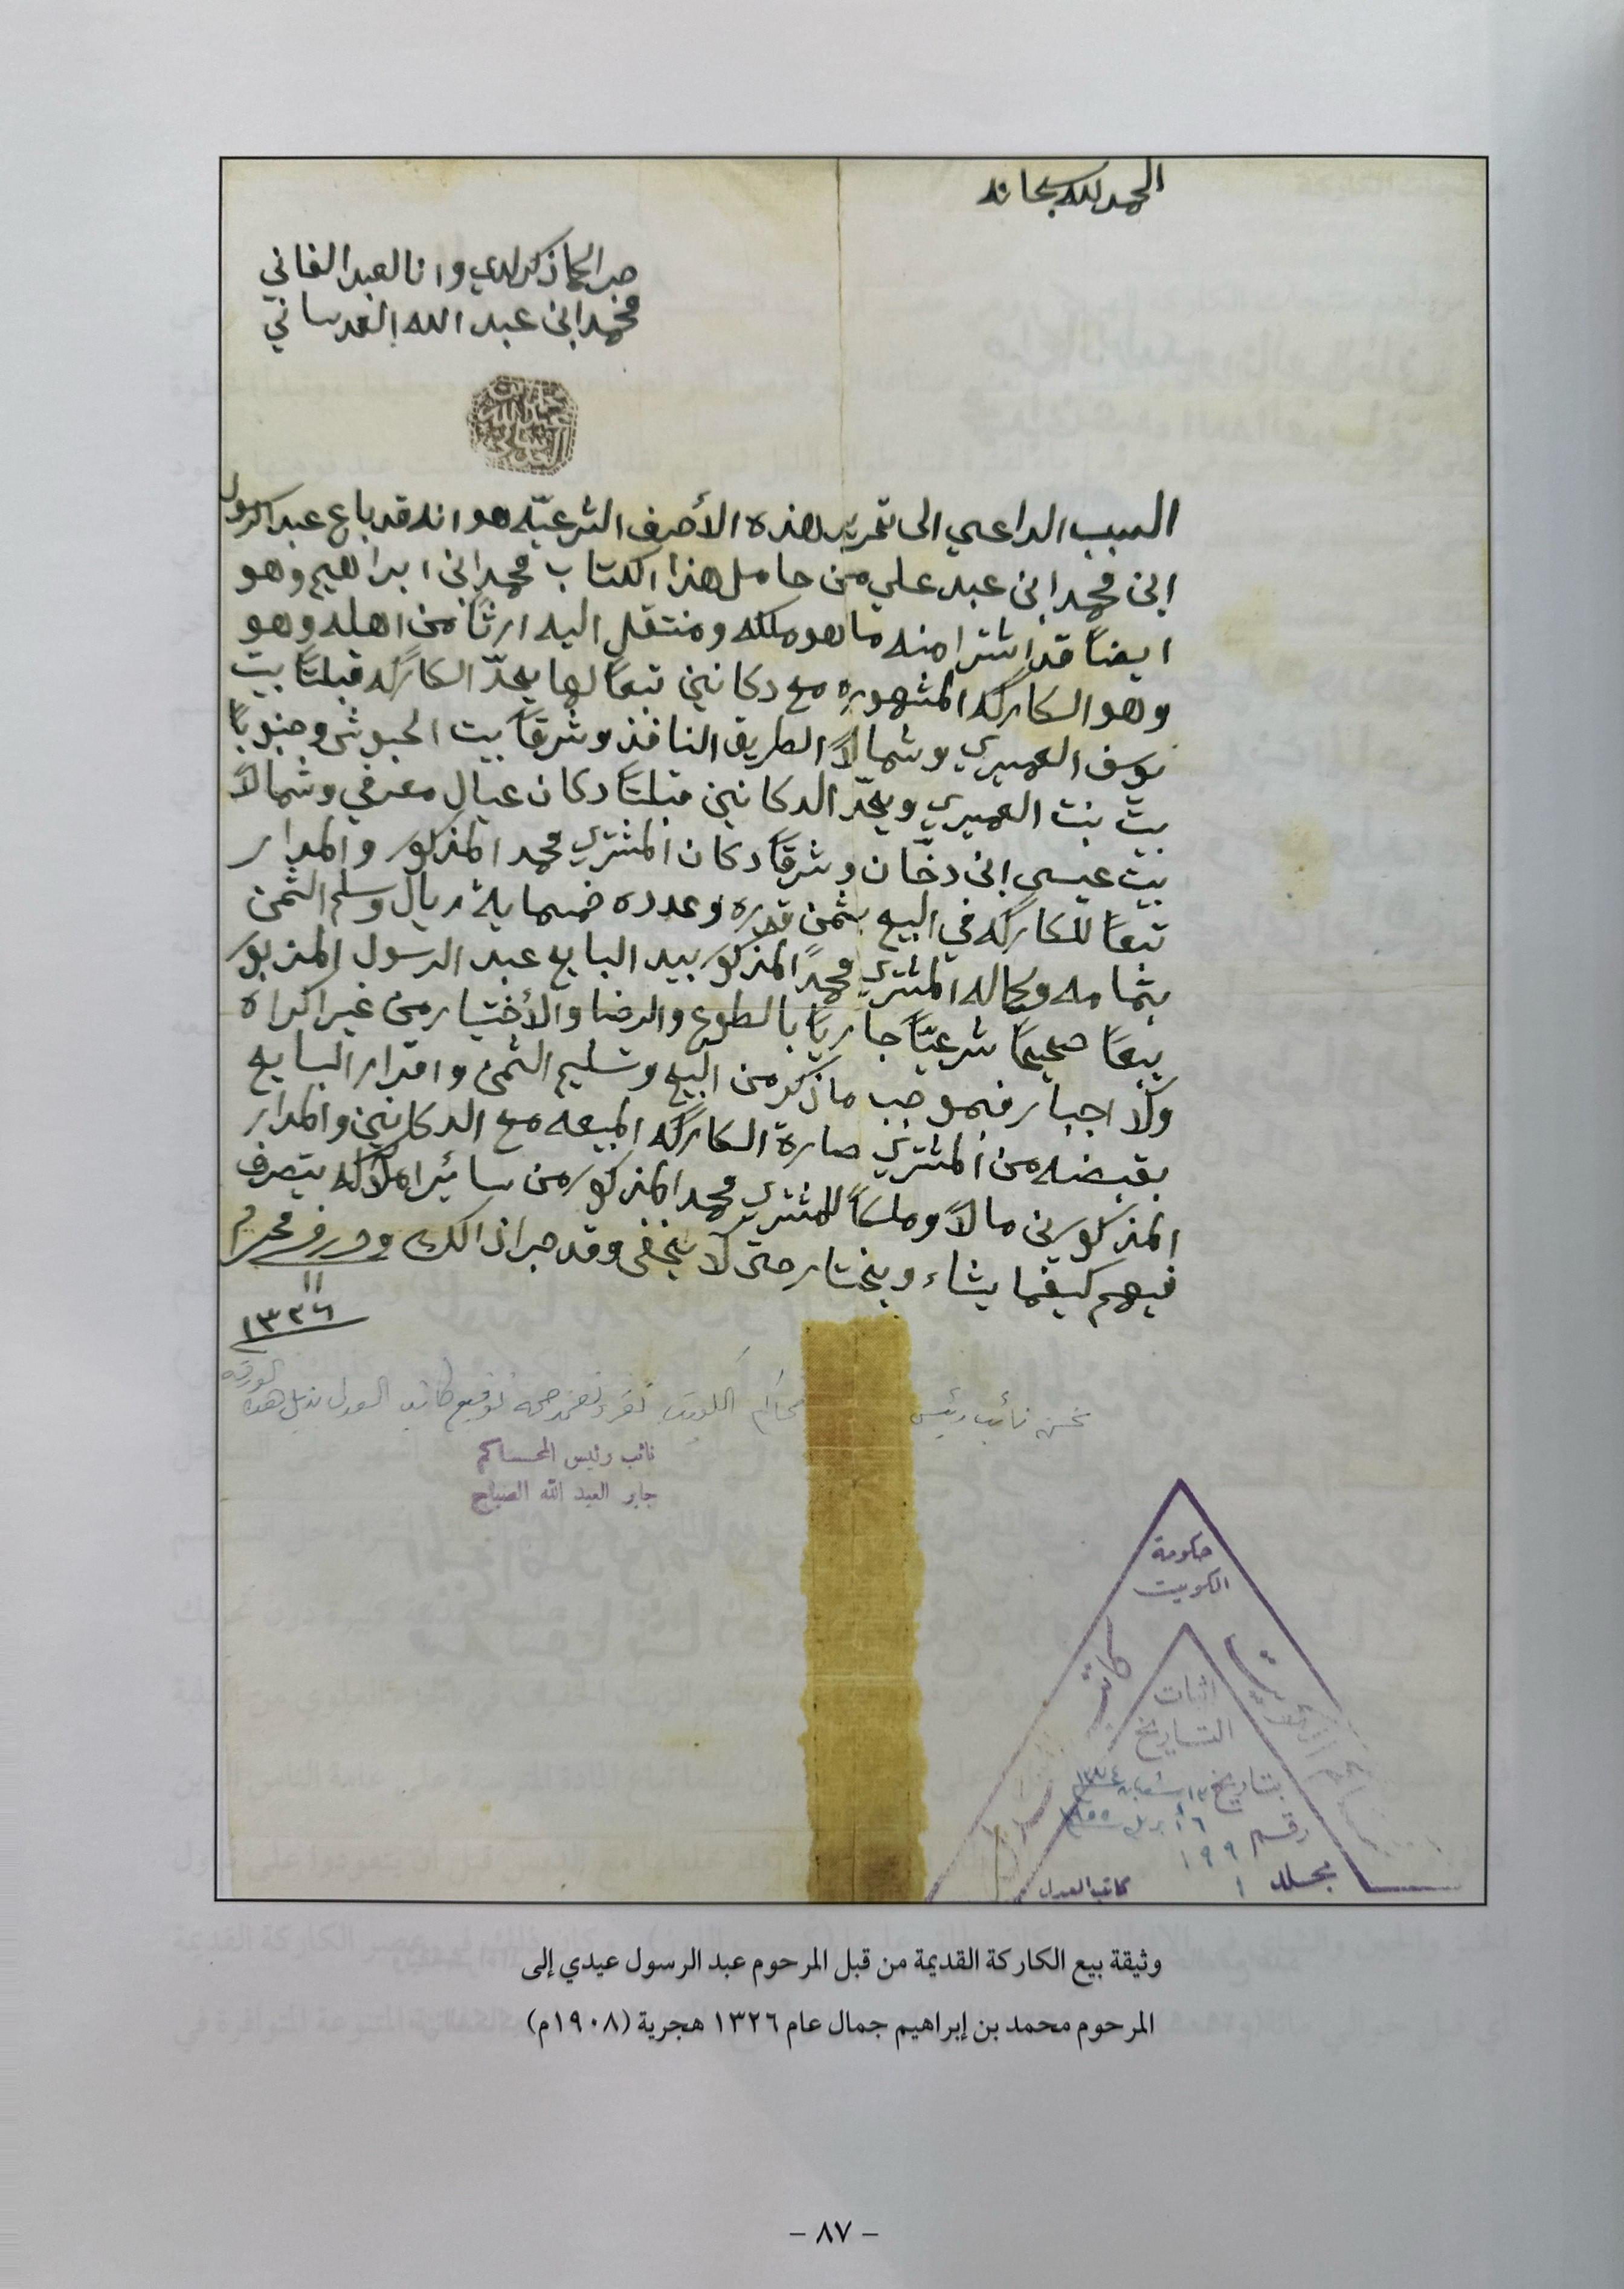 الحمد لله سبحانه
جرا لكما ذكر لدي وانا العبد الفاني
محمد ابن عبد الله العدساني
السبب الداعي الى تحرير هذه الأحرف الشرعيّه هو انه قد باع عبد الرسول
ابن محمد ابن عبد علي من حامل هذا الكتاب محمد ابن ابراهيم وهو
ايضاً قد اشترا منه ما هو ملكه ومنتقل اليه ارثاً من اهله وهو
وهو الكاركه المشهوره مع دكانين تبعاً لها يحدّ الكاركه قبلتاً بيت
يوسف العميري وشمالاً الطريق النافذ وشرقاً بيت الحبوش وجنوباً
بيت بنت العميري ويحدّ الدكانين قبلتاً دكان عيال معرفي وشمالاً
بيت عيسى ابن دخّان وشرقاً دكان المشتري محمد المذكور والمدار
تبعاً للكاركه في البيع بثمن قدره وعدده خمسماية ريال وسلم الثمن
بتمامه وكماله المشتري محمدً المذكور بيد البايع عبد الرسول المزبور
بيعاً صحيحاً شرعيّاً جارياً بالطوع والرضا والأختيار من غير اكراه
ولا اجبار فبموجب ما ذكر من البيع وتسليم الثمن واقرار البايع
بقبضه من المشتري صارة الكاركه المبيعه مع الدكانين والمدار
المذكورين مالاً وملكاً للمشتري محمد المذكور من سائر املاكه يتصرف
فيهم كيفما يشاء ويختار حتى لا يخفى وقد جرا ذالك وحرر في محرم
١١
١٣٢٦
نحن نائب رئيس محاكم الكويت نقر ونعتمد صحة توقيع كاتب العدل بذيل هذه الورقة
نائب رئيس المحساكم
جابر العبد الله الصباح
حكومة
الكويت
اثبات
التاريخ
بتاريخ ١٣ شعبان ١٣٧٤
٦ ابريل ١٩٥٥
رقم ١٩٩
مجلد ١
كاتب العدل
وثيقة بيع الكاركة القديمة من قبل المرحوم عبد الرسول عيدي إلى
المرحوم محمد بن إبراهيم جمال عام ١٣٢٦ هجرية (١٩٠٨م)
– ٨٧ –